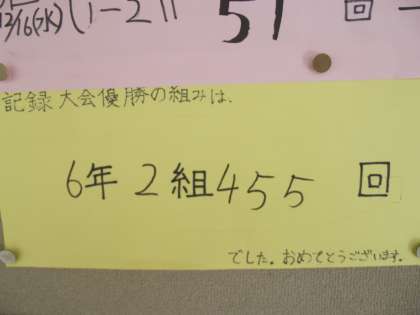 12/16(水) (1-2) 51 回
記録大会優勝の組みは、
6年 2組 455 回
でした。おめでとうございます。